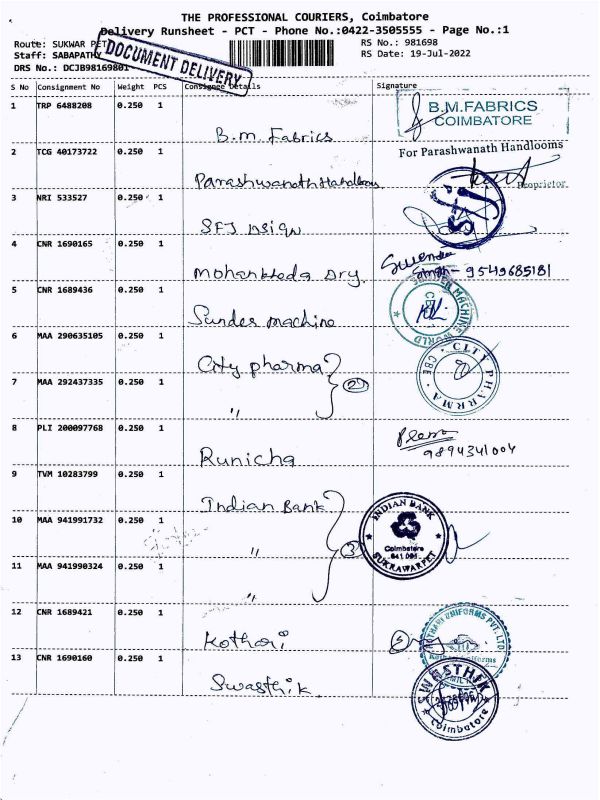 THE PROFESSIONAL COURIERS, Coimbatore
Delivery Runsheet - PCT - Phone No.:0422-3505555 - Page No.:1
Route: SUKWAR PET
RS No.: 981698
Staff: SABAPATHY
RS Date: 19-Jul-2022
DRS No.: DCJB98169801
DOCUMENT DELIVERY
S No Consignment No Weight PCS Consignee Details Signature
1 TRP 6488208 0.250 1
B.M. Fabrics
B.M.FABRICS
COIMBATORE
2 TCG 40173722 0.250 1
For Parashwanath Handlooms
Proprietor
3 NRI 533527 0.250 1
SFJ
4 CNR 1690165 0.250 1
Singh - 9549685181
5 CNR 1689436 0.250 1
Sunder machine
SUNDER MACHINE WORLD
CBE
6 MAA 290635105 0.250 1
City pharma
CITY PHARMA
CBE
7 MAA 292437335 0.250 1
"
2
8 PLI 200097768 0.250 1
Runicha
9894341004
9 TVM 10283799 0.250 1
Indian Bank
10 MAA 941991732 0.250 1
"
3
INDIAN BANK
Coimbatore
641 001
SUKRAWARPET
11 MAA 941990324 0.250 1
"
12 CNR 1689421 0.250 1
Kothari
KOTHARI UNIFORMS PVT. LTD.
13 CNR 1690160 0.250 1
Swasthik
SWASTHIK
Coimbatore